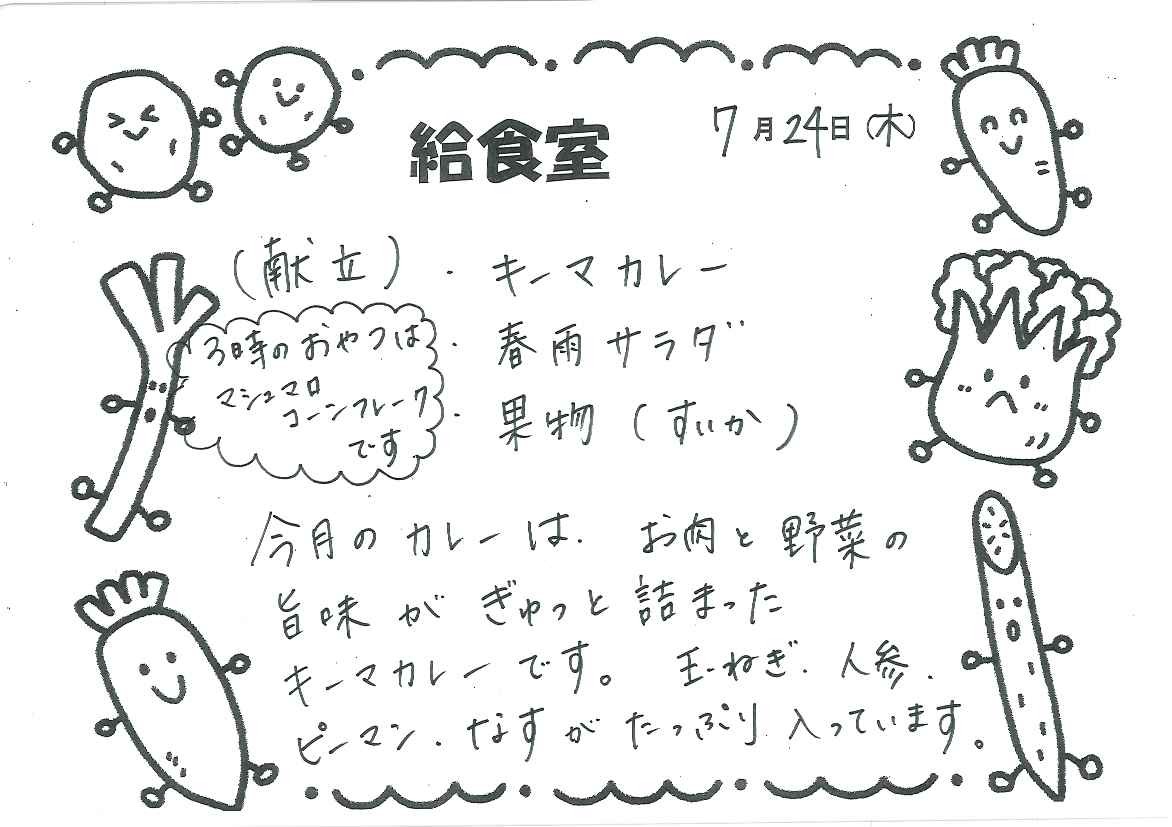 給食室
7月24日(木)
(献立)・キーマカレー
・春雨サラダ
・果物(すいか)
3時のおやつは
マシュマロ
コーンフレーク
です
今月のカレーは、お肉と野菜の
旨味がぎゅっと詰まった
キーマカレーです。玉ねぎ、人参、
ピーマン、なすがたっぷり入っています。